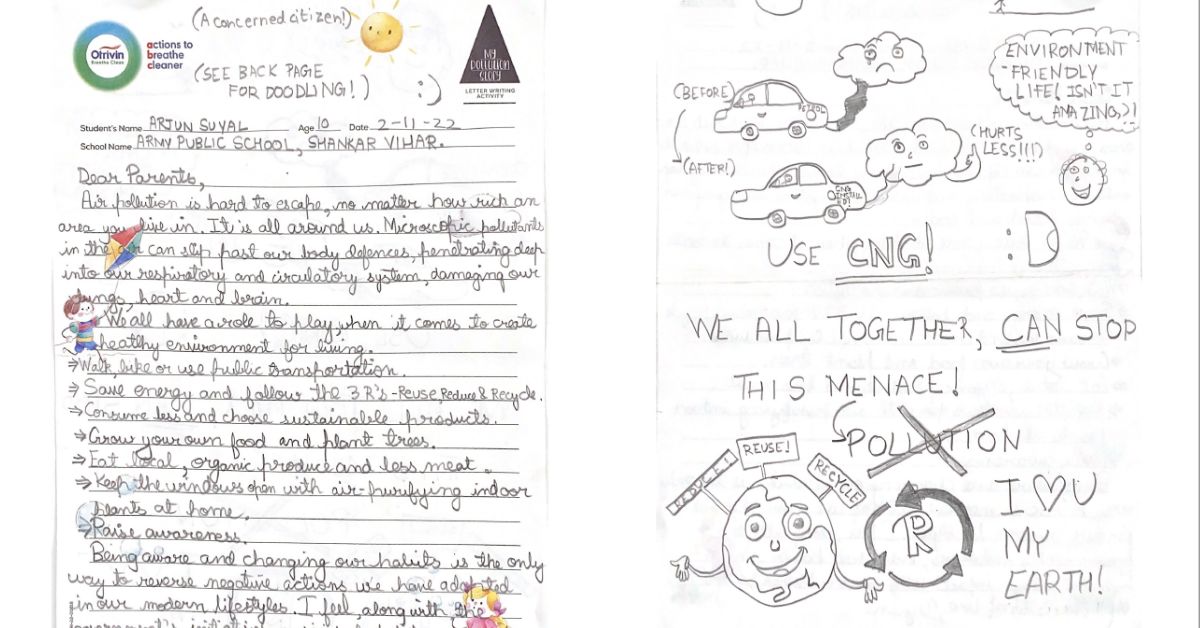 (A concerned citizen!)
Otrivin
Breathe Clean
actions to
breathe
cleaner
(SEE BACK PAGE
FOR DOODLING!)
:)
MY
POLLUTION
STORY
LETTER WRITING
ACTIVITY
Student's Name ARJUN SUYAL Age 10 Date 2-11-22
School Name ARMY PUBLIC SCHOOL, SHANKAR VIHAR.
Dear Parents,
Air pollution is hard to escape, no matter how rich an
area you live in. It is all around us. Microscopic pollutants
in the air can slip past our body defences, penetrating deep
into our respiratory and circulatory system, damaging our
lungs, heart and brain.
We all have a role to play when it comes to create
healthy environment for living.
⇒ Walk, bike or use public transportation.
⇒ Save energy and follow the 3 R's - Reuse, Reduce & Recycle.
⇒ Consume less and choose sustainable products.
⇒ Grow your own food and plant trees.
⇒ Eat local, organic produce and less meat.
⇒ Keep the windows open with air-purifying indoor
plants at home.
⇒ Raise awareness.
Being aware and changing our habits is the only
way to reverse negative actions we have adopted
in our modern lifestyles. I feel, along with the
(BEFORE)
PETROL
ENVIRONMENT
-FRIENDLY
LIFE! ISN'T IT
AMAZING,)!
(AFTER!)
CNG
INSTALL
ED!
(HURTS
LESS!!!)
USE CNG! :D
WE ALL TOGETHER, CAN STOP
THIS MENACE!
POLLUTION
REDUCE!
REUSE!
RECYCLE
R
I ♡ U
MY
EARTH!